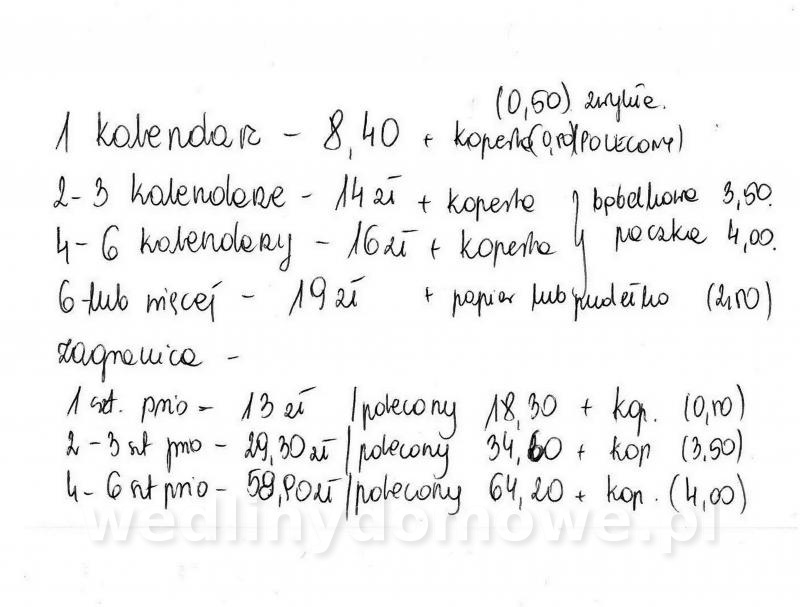 (0,50) zwykłe.
1 kalendarz - 8,40 + koperta (0,50) (POLECONY)
2-3 kalendarze - 14 zł + koperta } bąbelkowa 3,50.
4-6 kalendarzy - 16 zł + koperta } paczka 4,00.
6 lub więcej - 19 zł + papier lub pudełko (2,50)
Zagranica -
1 szt. prio - 13 zł / polecony 18,30 + kop. (0,50)
2-3 szt prio - 29,30 zł / polecony 34,60 + kop (3,50)
4-6 szt prio - 58,90 zł / polecony 64,20 + kop. (4,00)
wedlinydomowe.pl